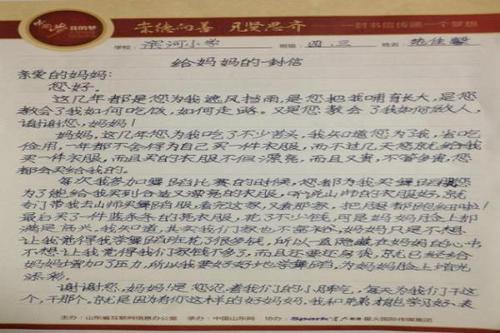 中国梦 我的梦
崇德向善 见贤思齐
一封书信传递一个梦想
学校:滨河小学 班级:四、三 姓名:
给妈妈的一封信
亲爱的妈妈:
您好。
这几年都是您为我遮风挡雨,是您把我哺育长大,是您
教会了我如何吃饭,如何走路。又是您教会了我如何做人,
谢谢您,妈妈!
妈妈,这几年您为我吃了不少苦头,我知道您为了我,省吃
俭用,一年都不舍得为自己买一件衣服,而不过几天您就给我
买一件衣服,而且买的衣服不但漂亮,而且又贵,不管多贵,您
都会买给我的。
每次我参加舞蹈比赛的时候,您都为我买舞蹈服,您为
了能给我买到合适又漂亮的衣服,听说山师的衣服好,就
专门带我去山师买舞蹈服,看完这家,又看那家,把腿都跑细啦!
最后买了一件蓝条条的亮衣服,花了不少钱,可是妈妈脸上却
满是高兴,我知道,其实我们家也不富裕,妈妈只是不想
让我觉得我学舞蹈班花了很多钱,所以一直隐藏在妈妈的心中
不想让我觉得我们家钱不多了,而且还要还房贷,就已经给
妈妈增加了压力,所以我要好好地学舞蹈,为妈妈脸上增光
添彩。
谢谢您,妈妈,您忍着我们的小脾气,每天为我们干这
个,干那个,就是因为有你这样的好妈妈,我和弟弟才能学习好、表
主办:山东省互联网信息办公室 承办:中国山东网 Spark 星火国际传媒集团